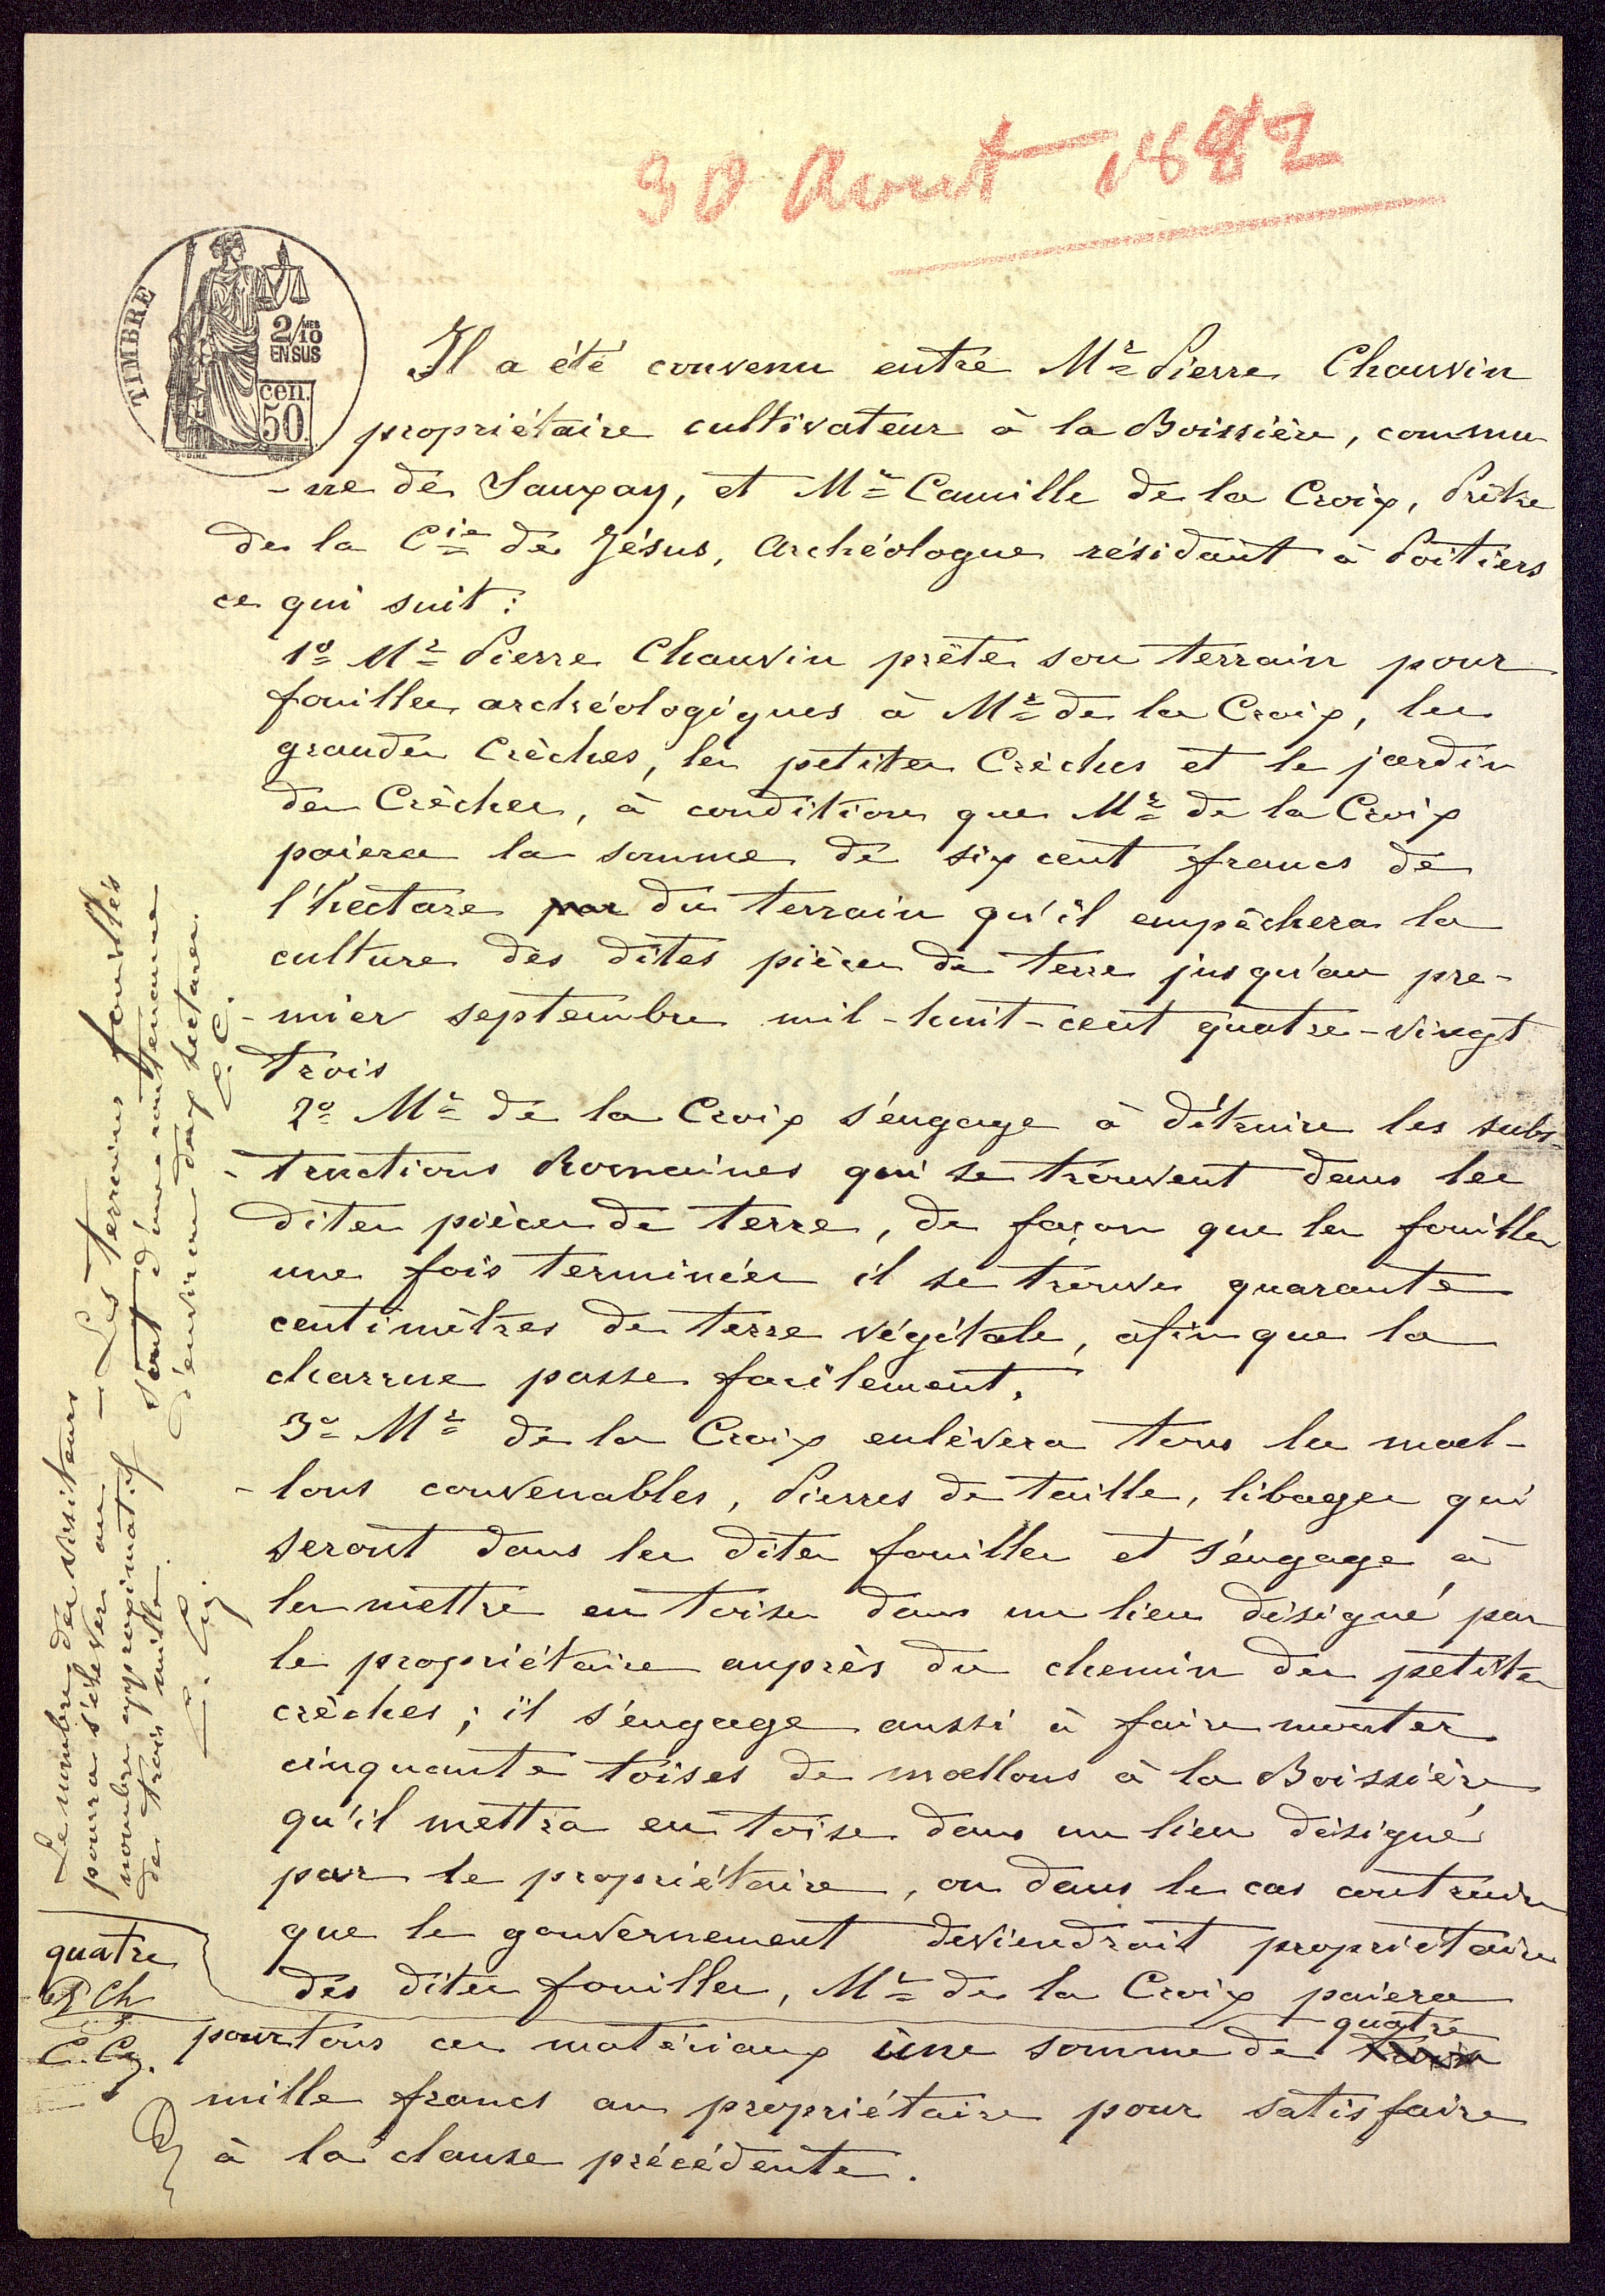 30 Aout 1882
TIMBRE
2/10 MES
EN SUS
cen.
50
Il a été convenu entre Mr Pierre Chauvin
propriétaire cultivateur à la Boissière, commu-
-ne de Sauxay, et Mr Camille de la Croix, Prêtre
de la Cie de Jésus, Archéologue résidant à Poitiers
ce qui suit :
1o Mr Pierre Chauvin prête son terrain pour
fouilles archéologiques à Mr de la Croix, les
grandes Crèches, les petites Crèches et le jardin
des Crèches, à condition que Mr de la Croix
paiera la somme de six cent francs de
l'hectare par du terrain qu'il empêchera la
culture des dites pièces de terre jusqu'au pre-
-mier septembre mil-huit-cent quatre-vingt
trois
2o Mr de la Croix s'engage à détruire les subs-
-tructions Romaines qui se trouvent dans les
dites pièces de terre, de façon que les fouilles
une fois terminées il se trouve quarante
centimètres de terre végétale, afin que la
charrue passe facilement.
3o Mr de la Croix enlèvera tous les moel-
-lons convenables, Pierres de taille, libages qui
seront dans les dites fouilles et s'engage à
les mettre en toise dans un lieu désigné par
le propriétaire auprès du chemin des petites
crèches ; il s'engage aussi à faire monter
cinquante toises de moellons à la Boissière
qu'il mettra en toise dans un lieu désigné
par le propriétaire, ou dans le cas contraire
que le gouvernement deviendrait propriétaire
des dites fouilles, Mr de la Croix paiera
pour tous ces matériaux une somme de trois quatre
mille francs au propriétaire pour satisfaire
à la clause précédente.
quatre
P Ch
C. Cx.
Le nombre des visiteurs
pourra s'élever au
nombre approximatif
de trois mille.
C. C.
— Les terrains fouillés
sont d'une contenance
d'environ deux hectares.
C. C.